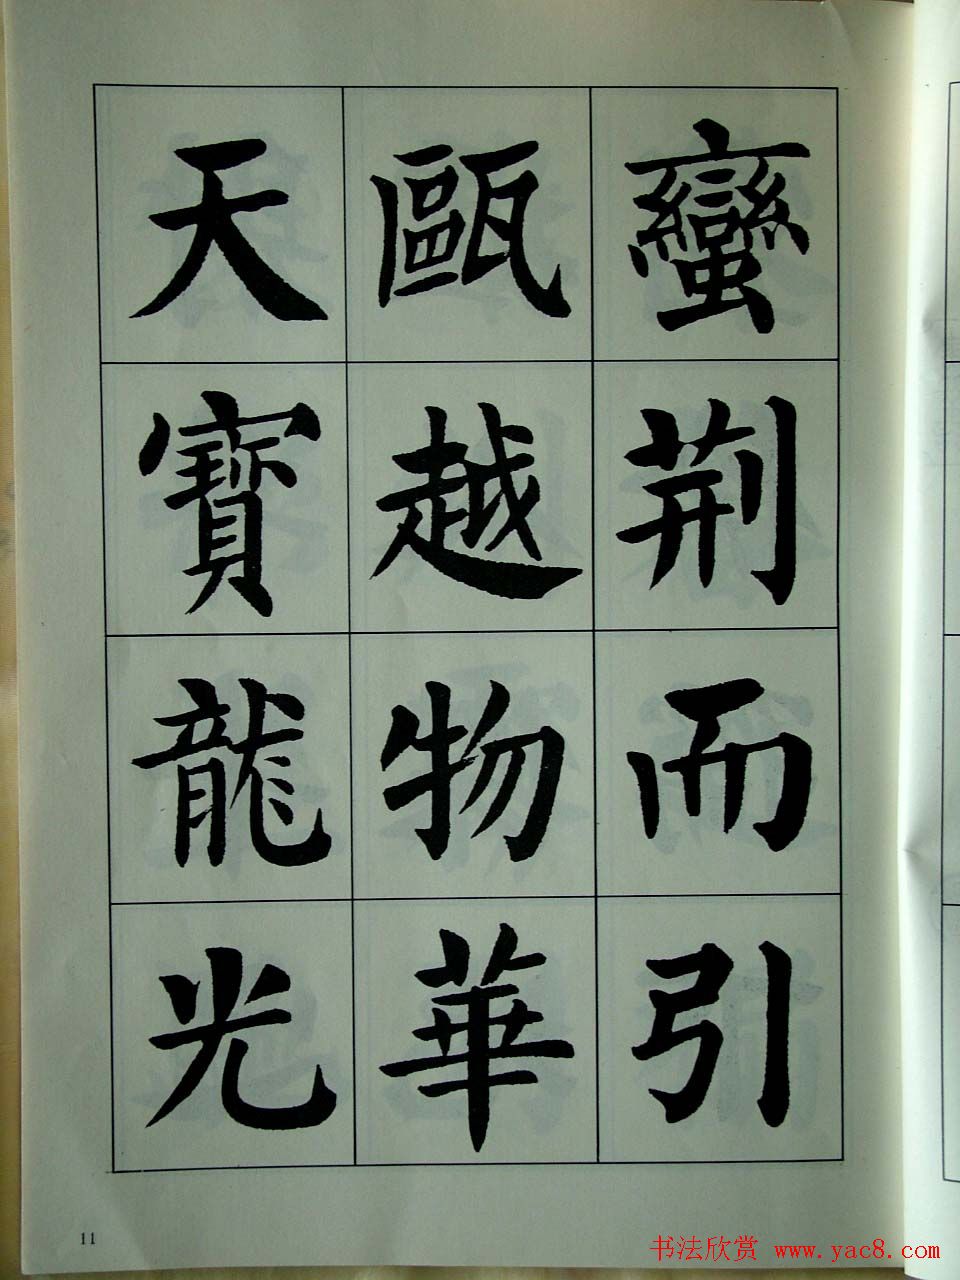 蠻荊而引
甌越物華
天寶龍光
11
书法欣赏 www.yac8.com